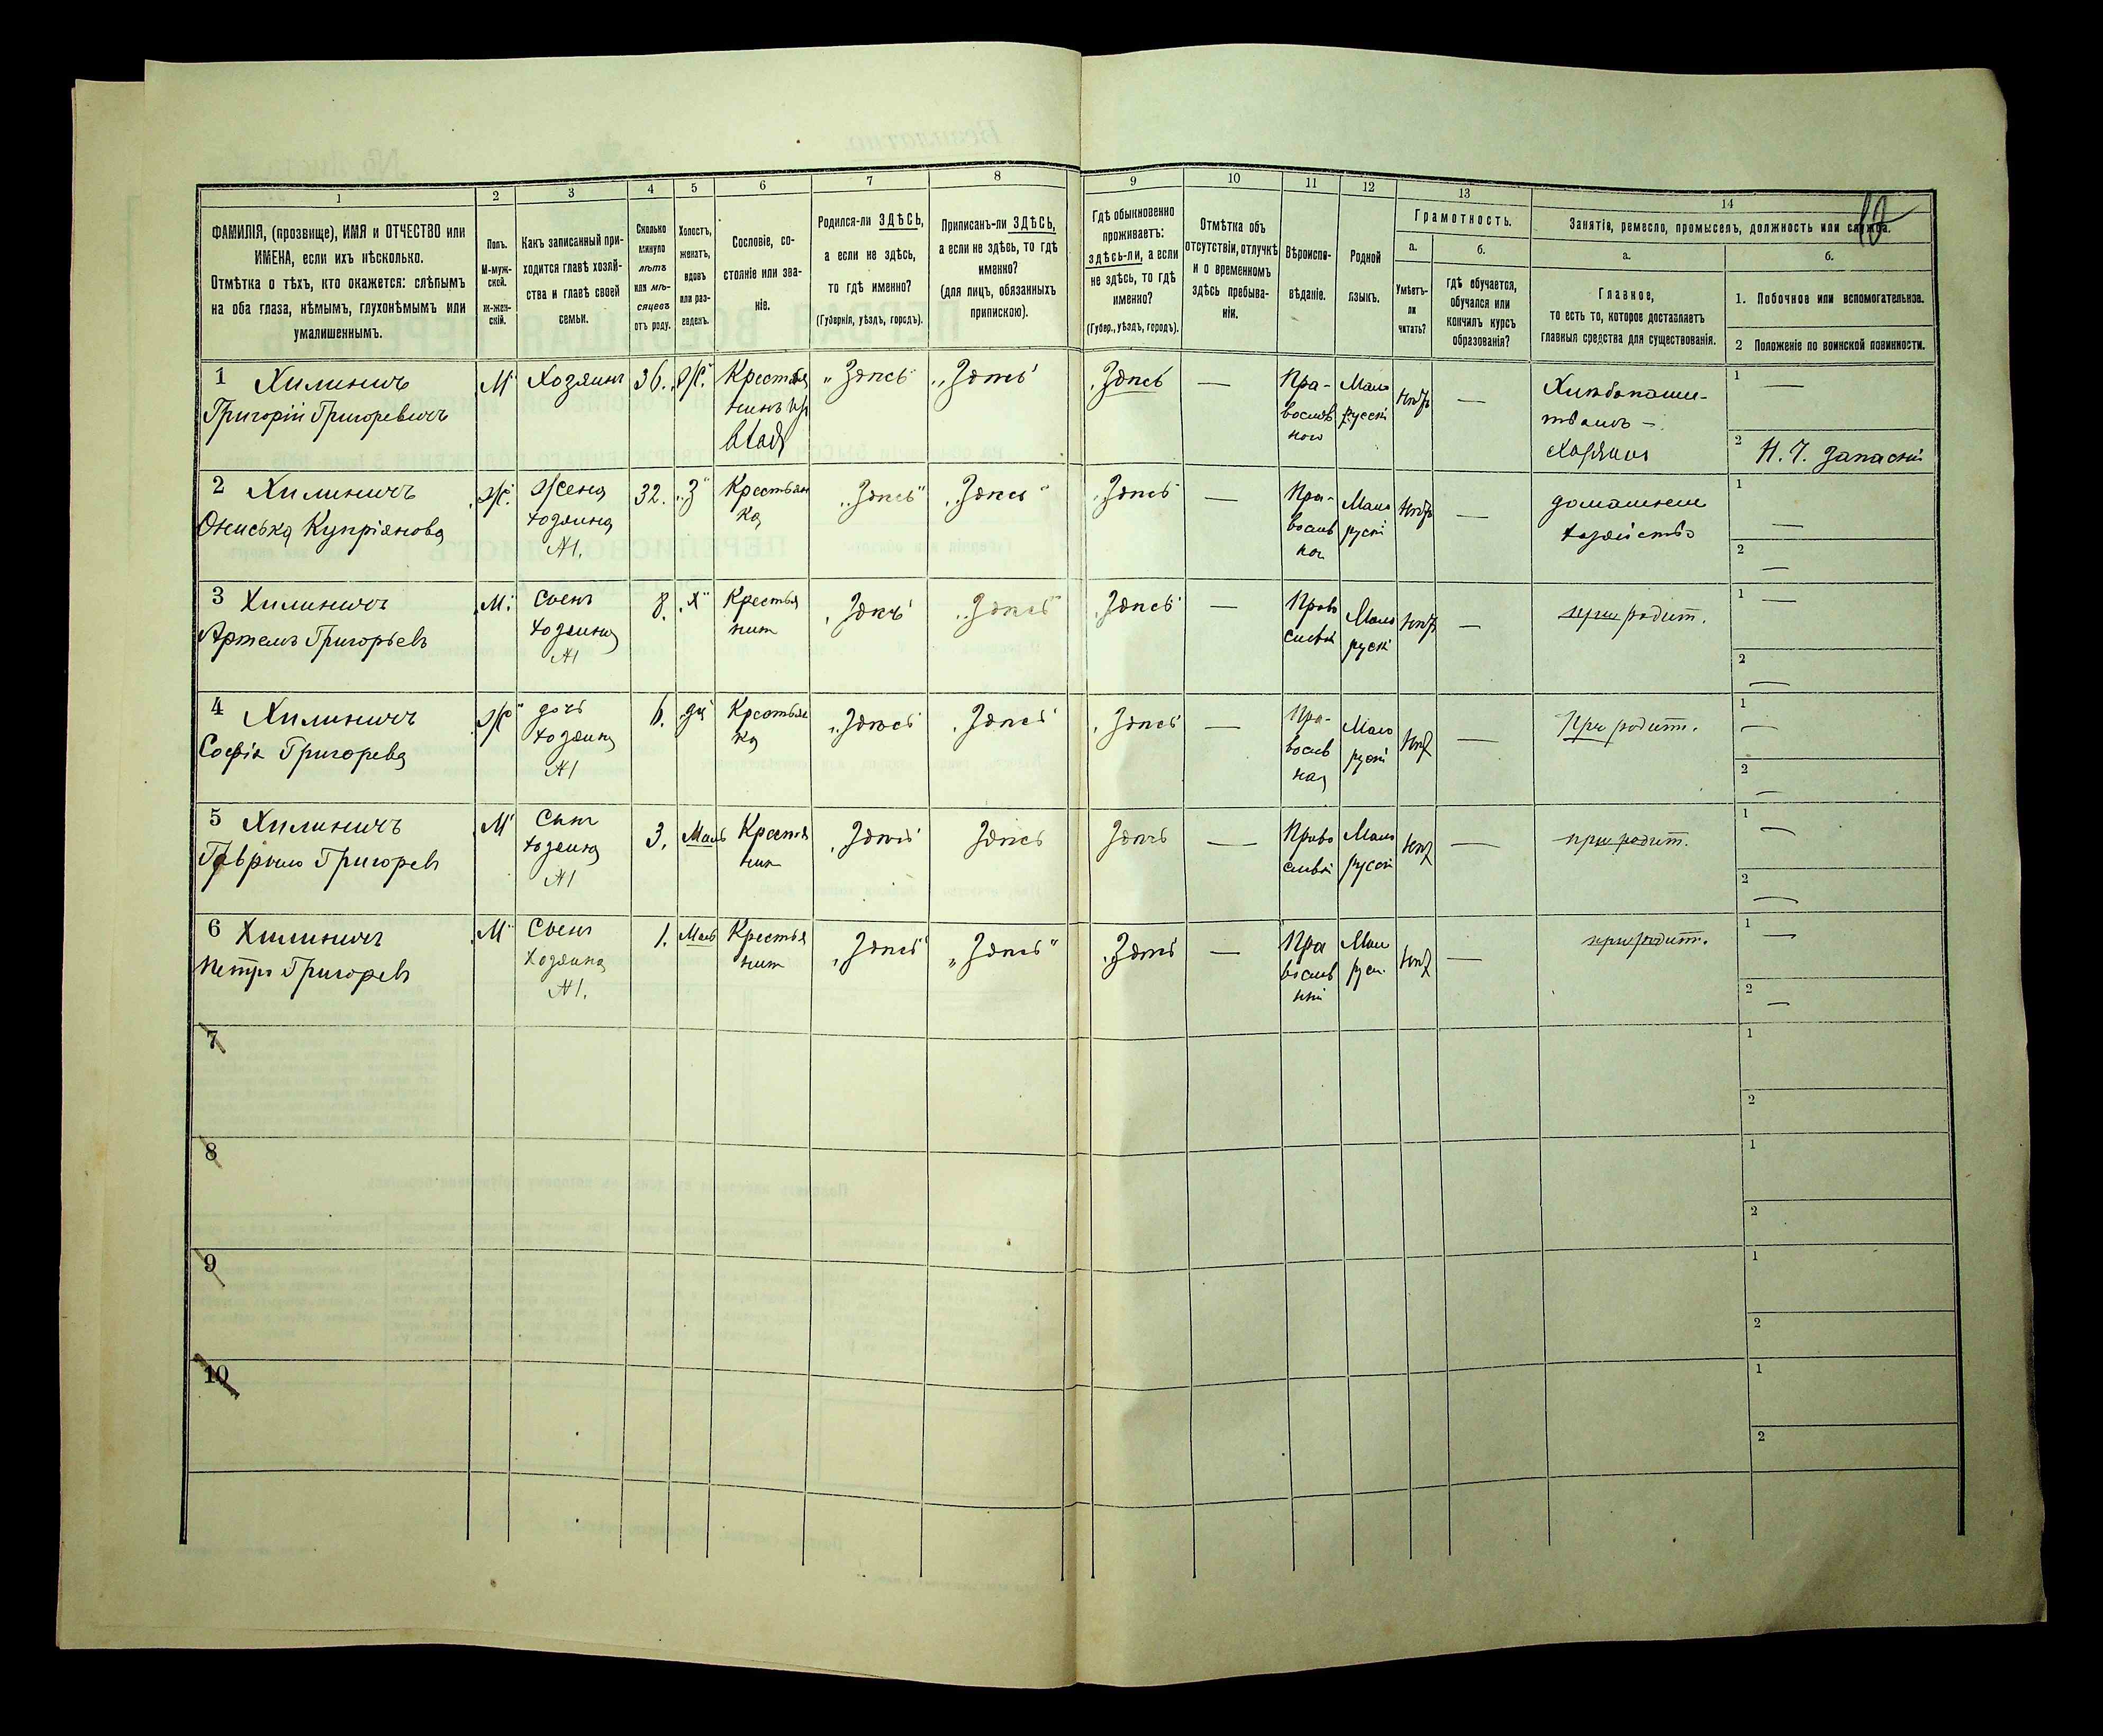 1 2 3 4 5 6 7 8 9 10 11 12 13 14
10
ФАМИЛІЯ, (прозвище), ИМЯ и ОТЧЕСТВО или
ИМЕНА, если ихъ нѣсколько.
Отмѣтка о тѣхъ, кто окажется: слѣпымъ
на оба глаза, нѣмымъ, глухонѣмымъ или
умалишеннымъ.
Полъ.
М-муж-
ской.
Ж-жен-
скій.
Какъ записанный при-
ходится главѣ хозяй-
ства и главѣ своей
семьи.
Сколько
минуло
лѣтъ
или мѣ-
сяцевъ
отъ роду.
Холостъ,
женатъ,
вдовъ
или раз-
веденъ.
Сословіе, со-
стояніе или зва-
ніе.
Родился-ли ЗДѢСЬ,
а если не здѣсь,
то гдѣ именно?
(Губернія, уѣздъ, городъ).
Приписанъ-ли ЗДѢСЬ,
а если не здѣсь, то гдѣ
именно?
(для лицъ, обязанныхъ
припискою).
Гдѣ обыкновенно
проживаетъ:
здѣсь-ли, а если
не здѣсь, то гдѣ
именно?
(Губер., уѣздъ, городъ).
Отмѣтка объ
отсутствіи, отлучкѣ
и о временномъ
здѣсь пребыва-
ніи.
Вѣроиспо-
вѣданіе.
Родной
языкъ.
Грамотность.
а.
Умѣетъ-
ли
читать?
б.
Гдѣ обучается,
обучался или
кончилъ курсъ
образованія?
Занятія, ремесло, промыселъ, должность или служба.
а.
Главное,
то есть то, которое доставляетъ
главныя средства для существованія.
б.
1. Побочное или вспомогательное.
2 Положеніе по воинской повинности.
1 Хилиничъ
Григорій Григоревичъ
М
Хозяинъ
36.
Ж.
Крестья
нинъ
„Здѣсь
„Здѣсь
„Здѣсь
—
Пра-
вослав
Мало
русскій
нѣтъ
—
Хлѣбопаше-
ствомъ –
хозяинъ
1 —
2 Н. Ч. Запасній
2 Хилиничъ
Ониська Купріянова
Ж.
Жена
хозяина
№1.
32.
„З"
Крестьян
ка
„Здѣсь"
„Здѣсь"
„Здѣсь
—
Пра-
вослав
ная
Мало
рускі
нѣтъ
—
домашнее
хозяйство
1 —
2 —
3 Хилиничъ
Артемъ Григорьевъ
М.
Сынъ
хозяина
№1
8.
„Х"
Крестья
нин
„Здѣсь
„Здѣсь"
„Здѣсь
—
Право
славн
Мало
рускі
нѣтъ
—
при родит.
1 —
2 —
4 Хилиничъ
Софія Григорева
Ж
дочь
хозяина
№1
6.
Крестьян
ка
„Здѣсь
„Здѣсь
„Здѣсь
—
Пра-
вослав
ная
Мало
рускі
нѣт
—
При родит.
1 —
2 —
5 Хилиничъ
Гаврыло Григорев
М
Сынъ
хозяина
№1
3.
Мал
Крестья
нин
„Здѣсь
Здѣсь
Здѣсь
—
Право
славн
Мало
рускій
нѣт
—
при родит.
1 —
2 —
6 Хилиничъ
Петръ Григорев
М
Сынъ
Хозяина
№1.
1.
Мал
Крестья
нин
„Здѣсь"
„Здѣсь"
„Здѣсь
—
Пра
вослав
ний
Мал
руск.
нѣт
—
при родит.
1 —
2 —
7
1
2
8
1
2
9
1
2
10
1
2